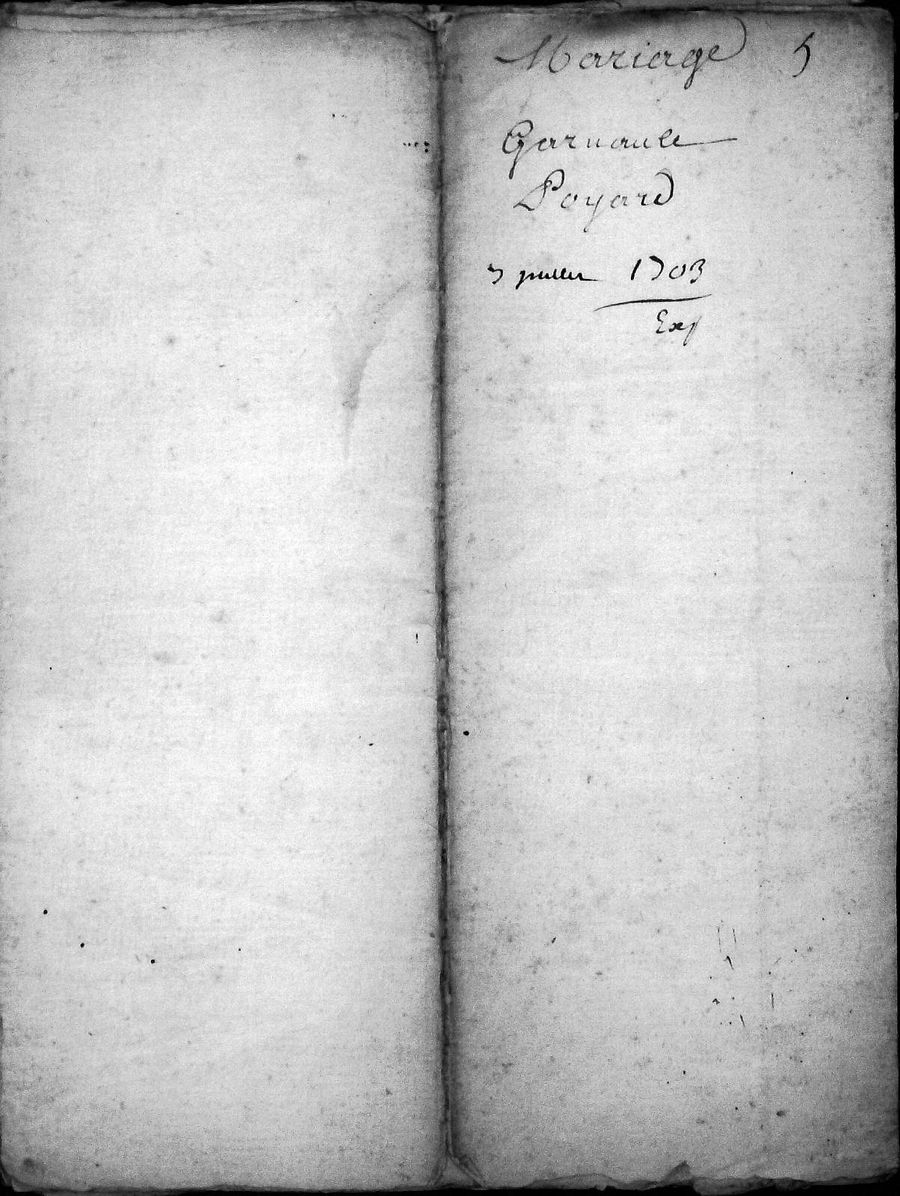 Mariage 5
Garnault
Poyard
5 juillet 1703
Exp